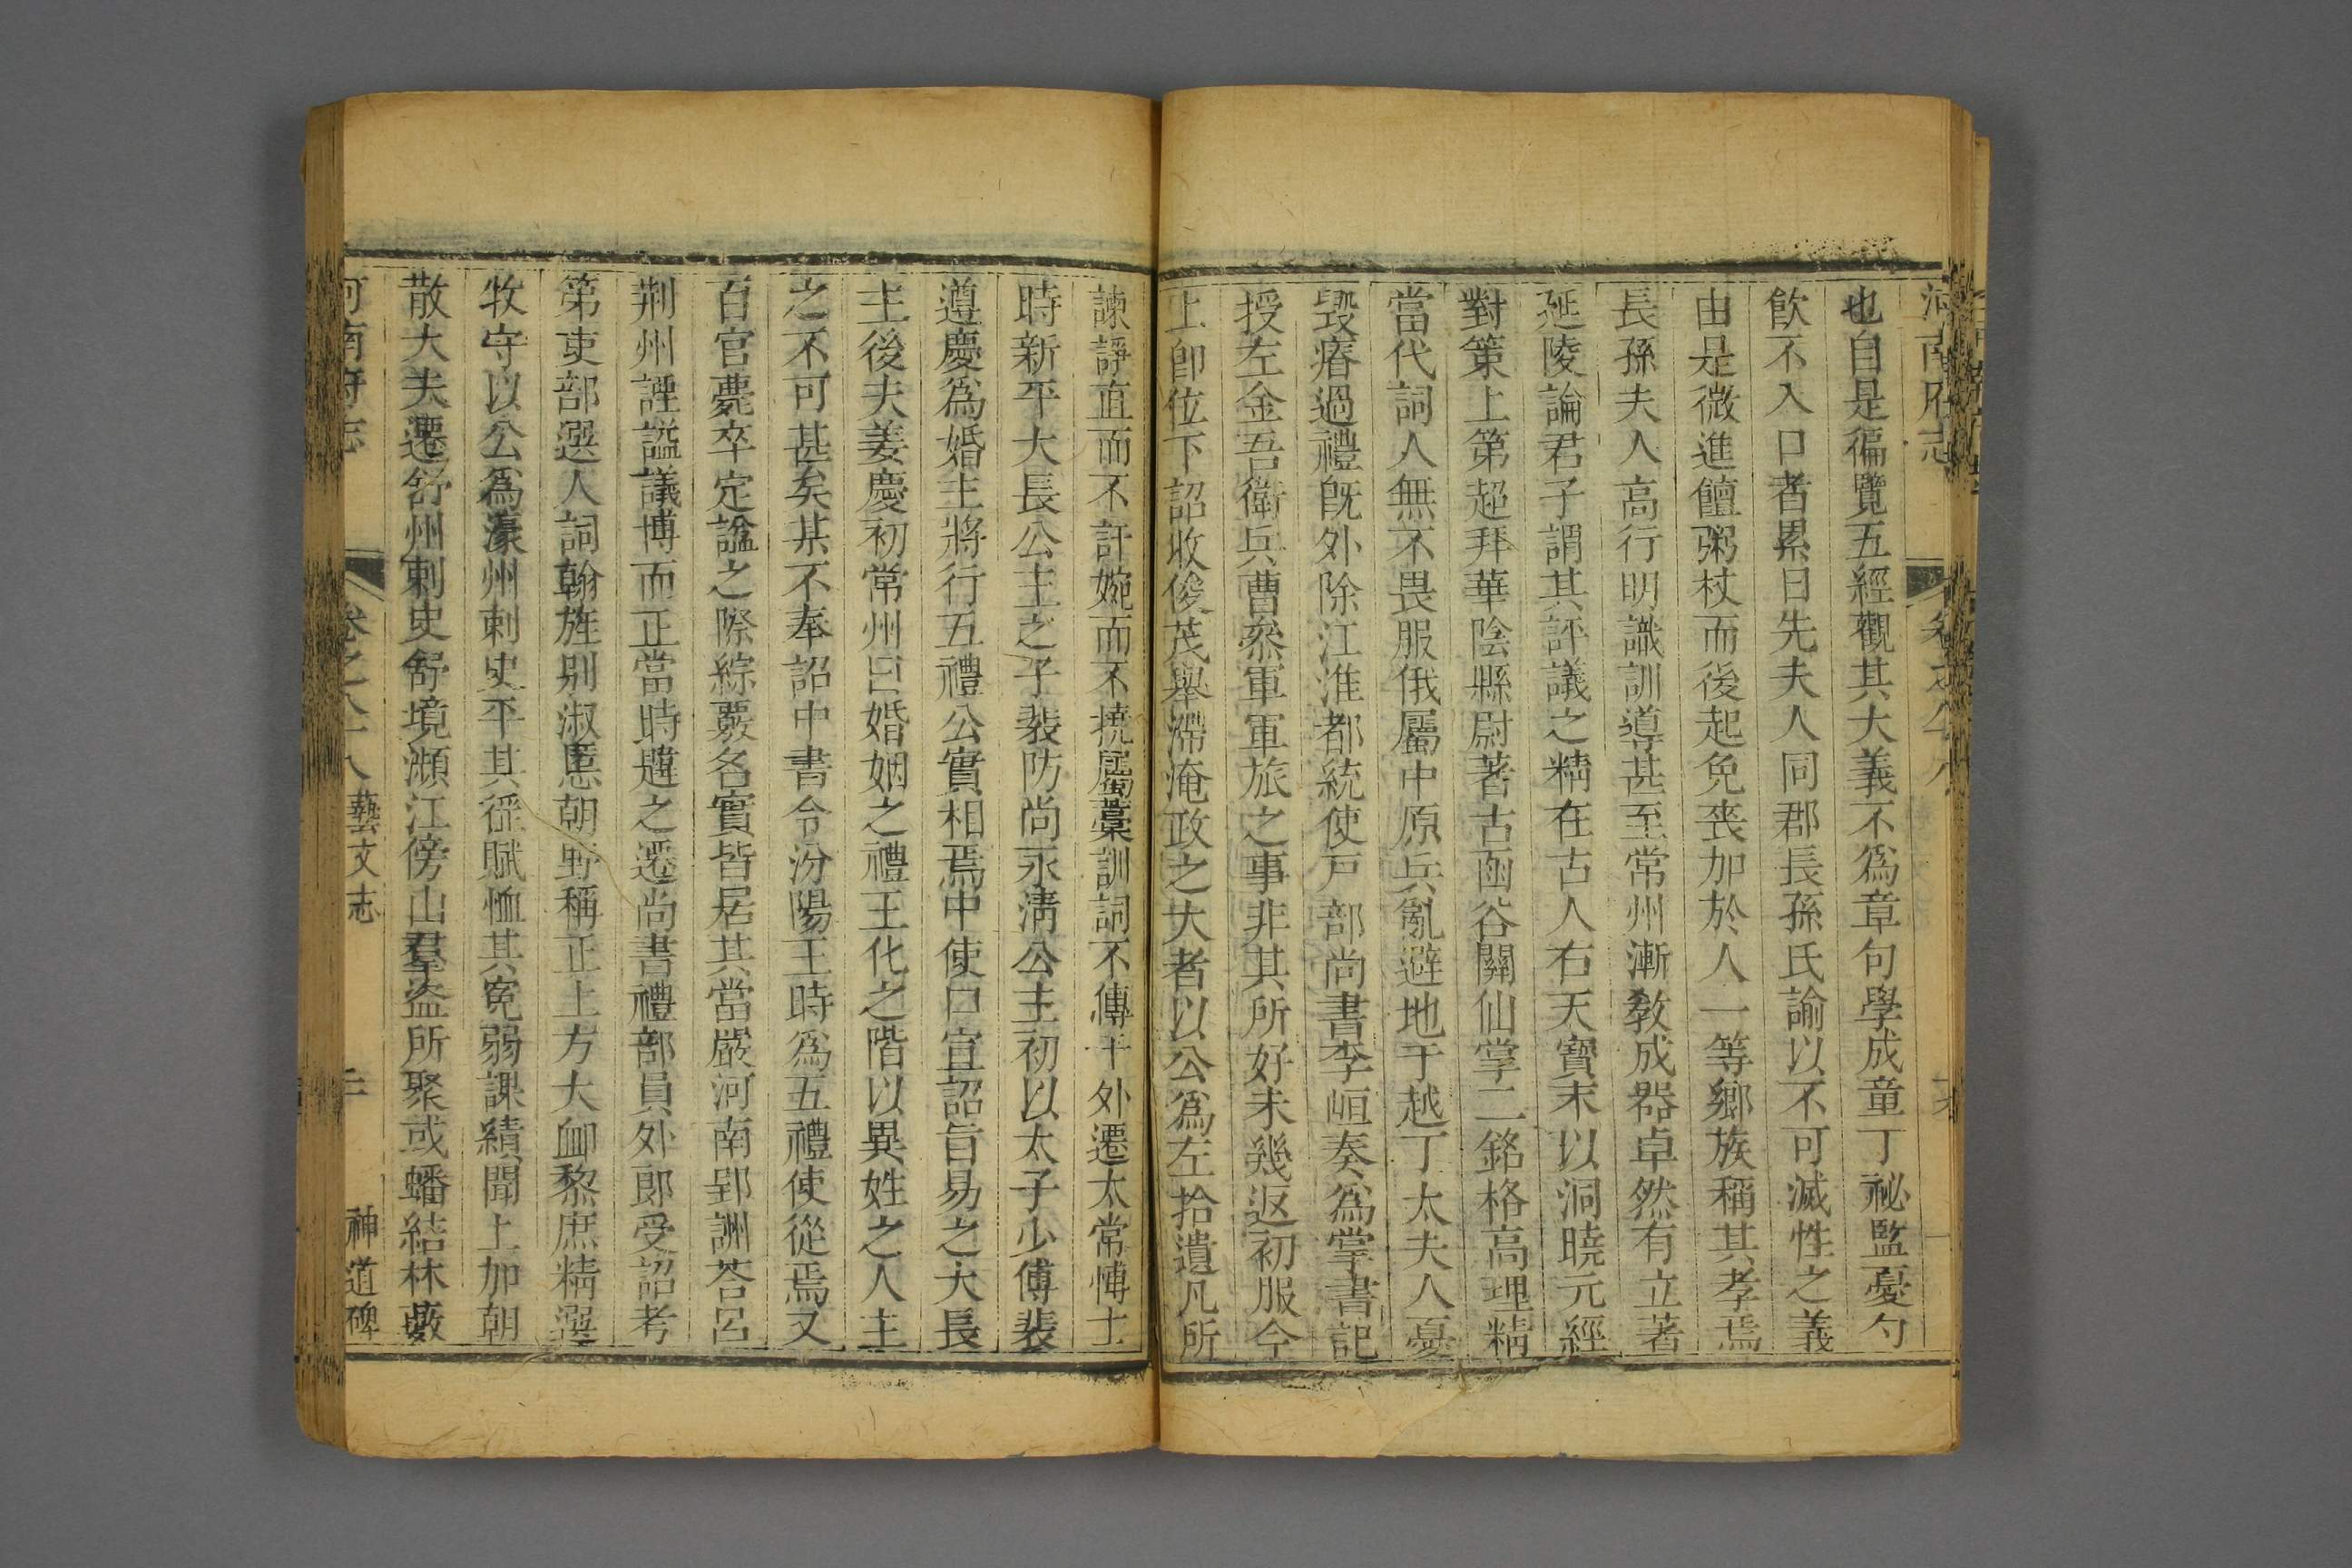 河南府志 卷之八十八
也自是徧覽五經觀其大義不爲章句學成童丁祕監憂勺
飮不入口者累日先夫人同郡長孫氏諭以不可滅性之義
由是微進饘粥杖而後起免喪加於人一等鄉族稱其孝焉
長孫夫人高行明識訓導甚至常州漸敎成器卓然有立著
延陵論君子謂其評議之精在古人右天寶末以洞曉元經
對策上第超拜華陰縣尉著古函谷關仙掌二銘格高理精
當代詞人無不畏服俄屬中原兵亂避地于越丁太夫人憂
毀瘠過禮旣外除江淮都統使戸部尚書李峘奏爲掌書記
授左金吾衛兵曹叅軍軍旅之事非其所好未幾返初服今
上卽位下詔收俊茂舉滯淹政之大者以公爲左拾遺凡所
諫諍直而不訐婉而不撓屬藁訓詞不傳于外遷太常愽士
時新平大長公主之子裴防尚永淸公主初以太子少傅裴
遵慶爲婚主將行五禮公實相焉中使口宣詔旨易之大長
主後夫姜慶初常州曰婚姻之禮王化之階以異姓之人主
之不可甚矣某不奉詔中書令汾陽王時爲五禮使從焉又
百官薨卒定諡之際綜覈名實皆居其當嚴河南郢詶荅呂
荆州諲謚議博而正當時韙之遷尚書禮部員外郞受詔考
第吏部選人詞翰旌别淑慝朝野稱正上方大䘏黎庶精選
牧守以公爲濠州刺史平其徭賦恤其寃弱課績聞上加朝
散大夫遷舒州刺史舒境瀕江傍山羣盜所聚或蟠結林藪
河南府志 卷之八十八 藝文志 神道碑